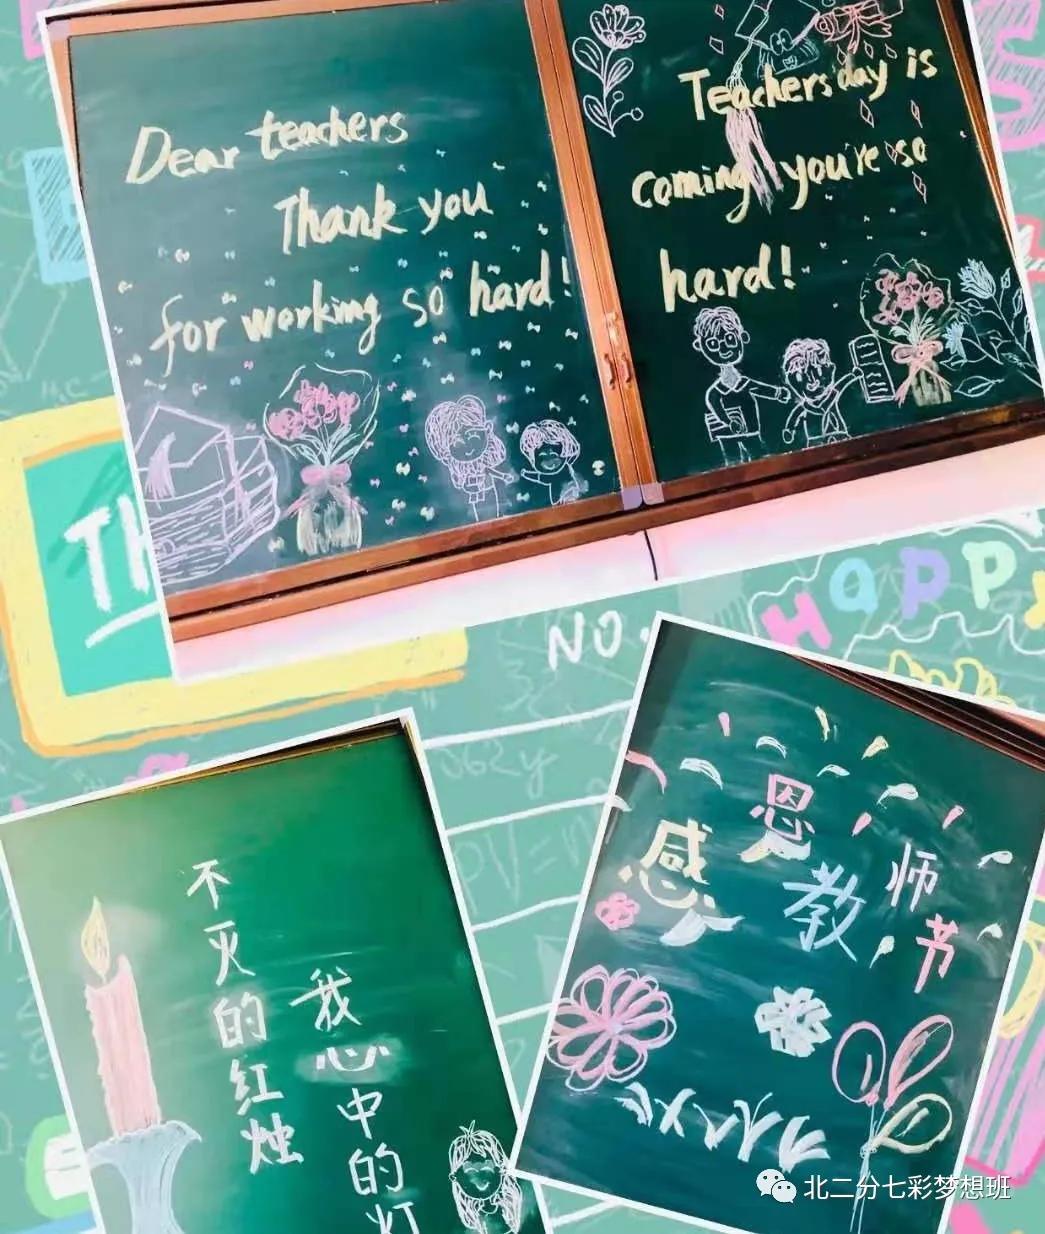 Dear teachers
Thank you
for working so hard!
Teachers day is
coming you're so
hard!
TH
NO.
HAPPY
不灭的红烛
我心中的灯
感恩教师节
北二分七彩梦想班